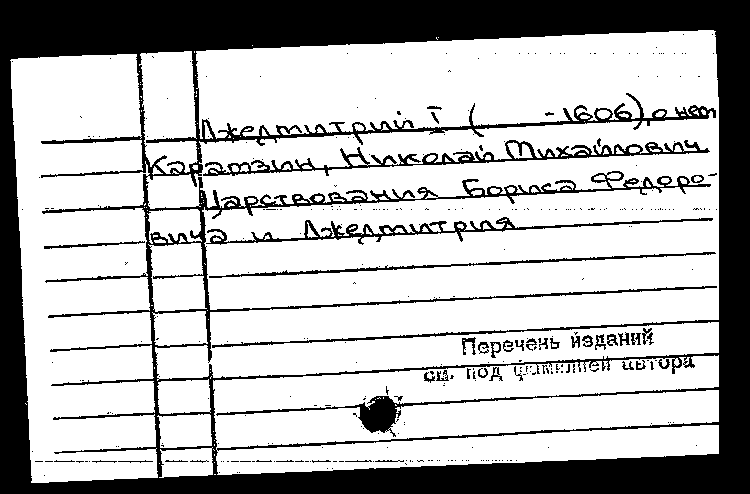 Лжедмитрий I ( -1606), о нем
Карамзин, Николай Михайлович
Царствования Бориса Федоро-
вича и Лжедмитрия
Перечень изданий
см. под фамилией автора